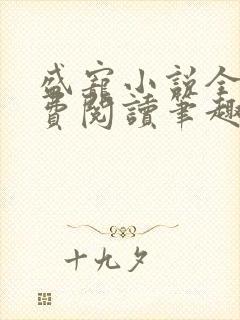 盛寵小說全
費閱讀筆趣
十九夕